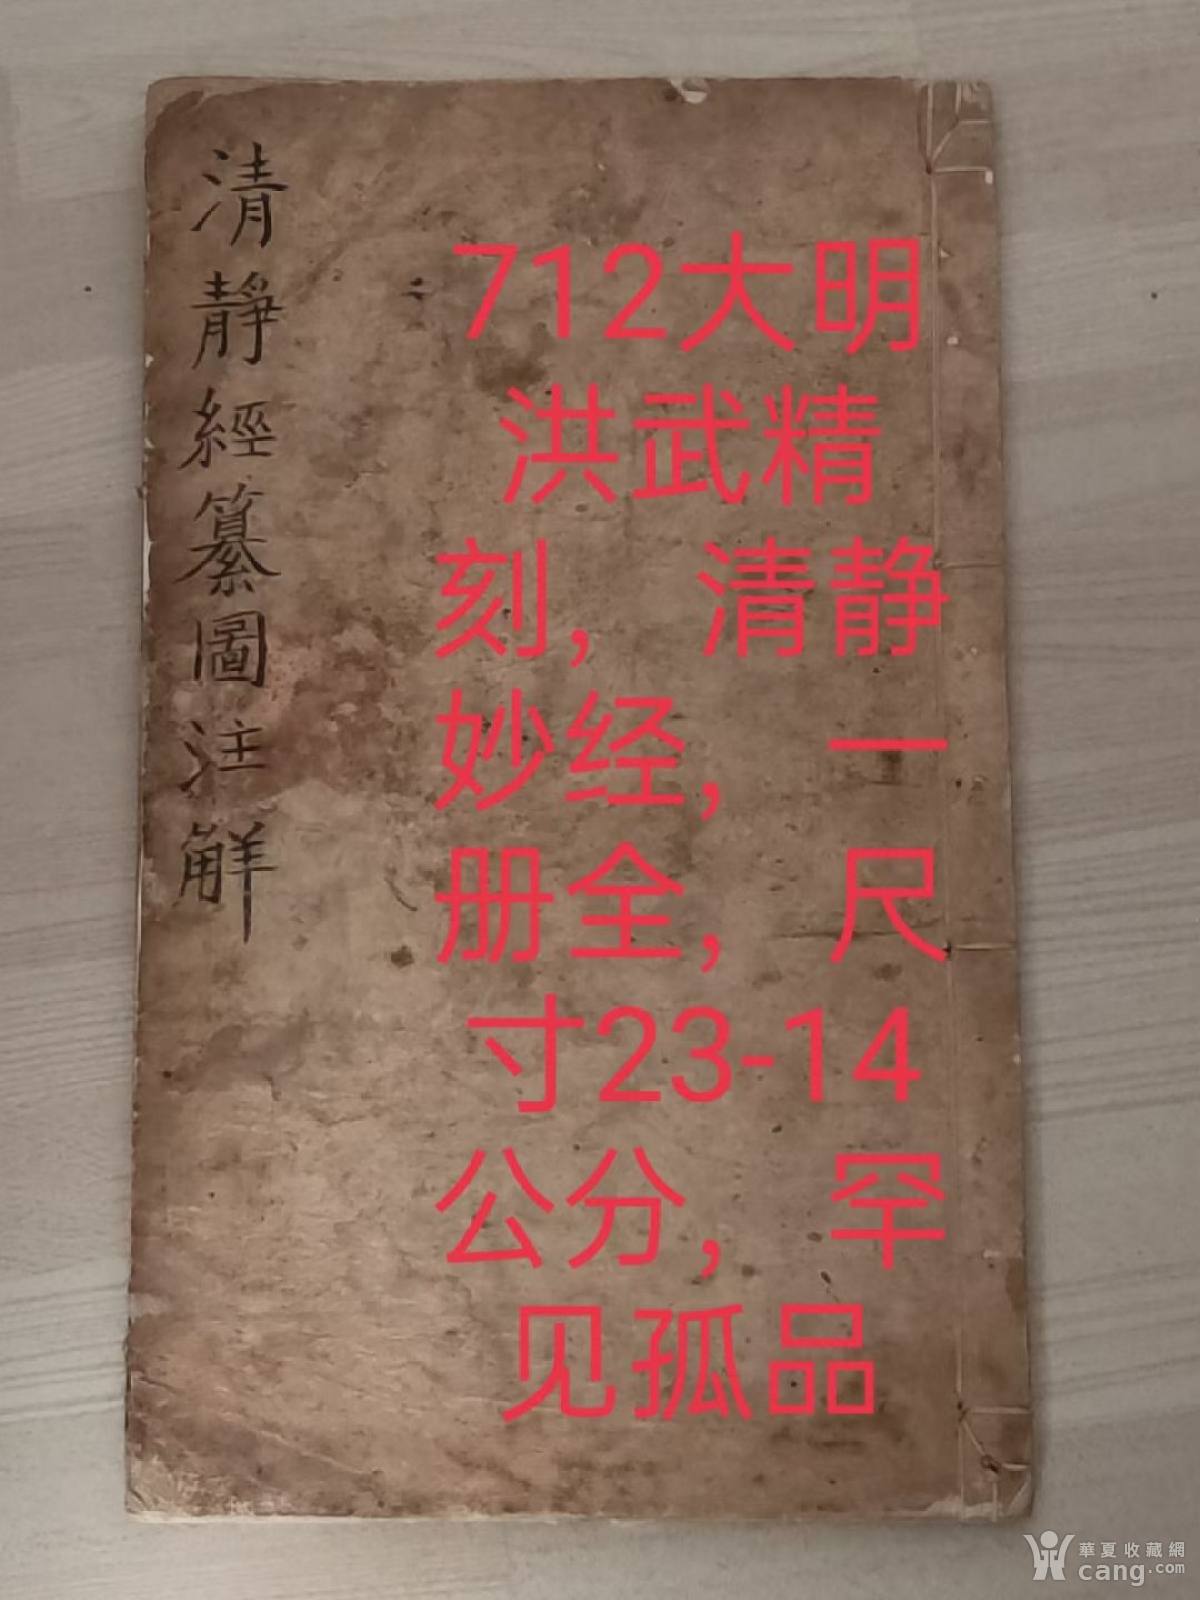 清靜經纂圖注觧
712大明
洪武精
刻，清静
妙经，一
册全，尺
寸23-14
公分，罕
见孤品
華夏收藏網
cang.com